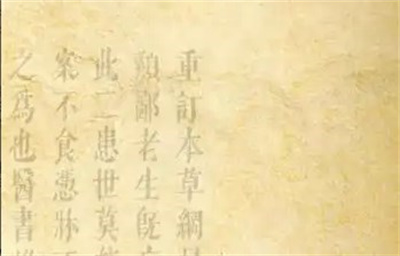 重訂本草綱
鄙老生旣
此二患世莫
案不食憑牀
之爲也醫書